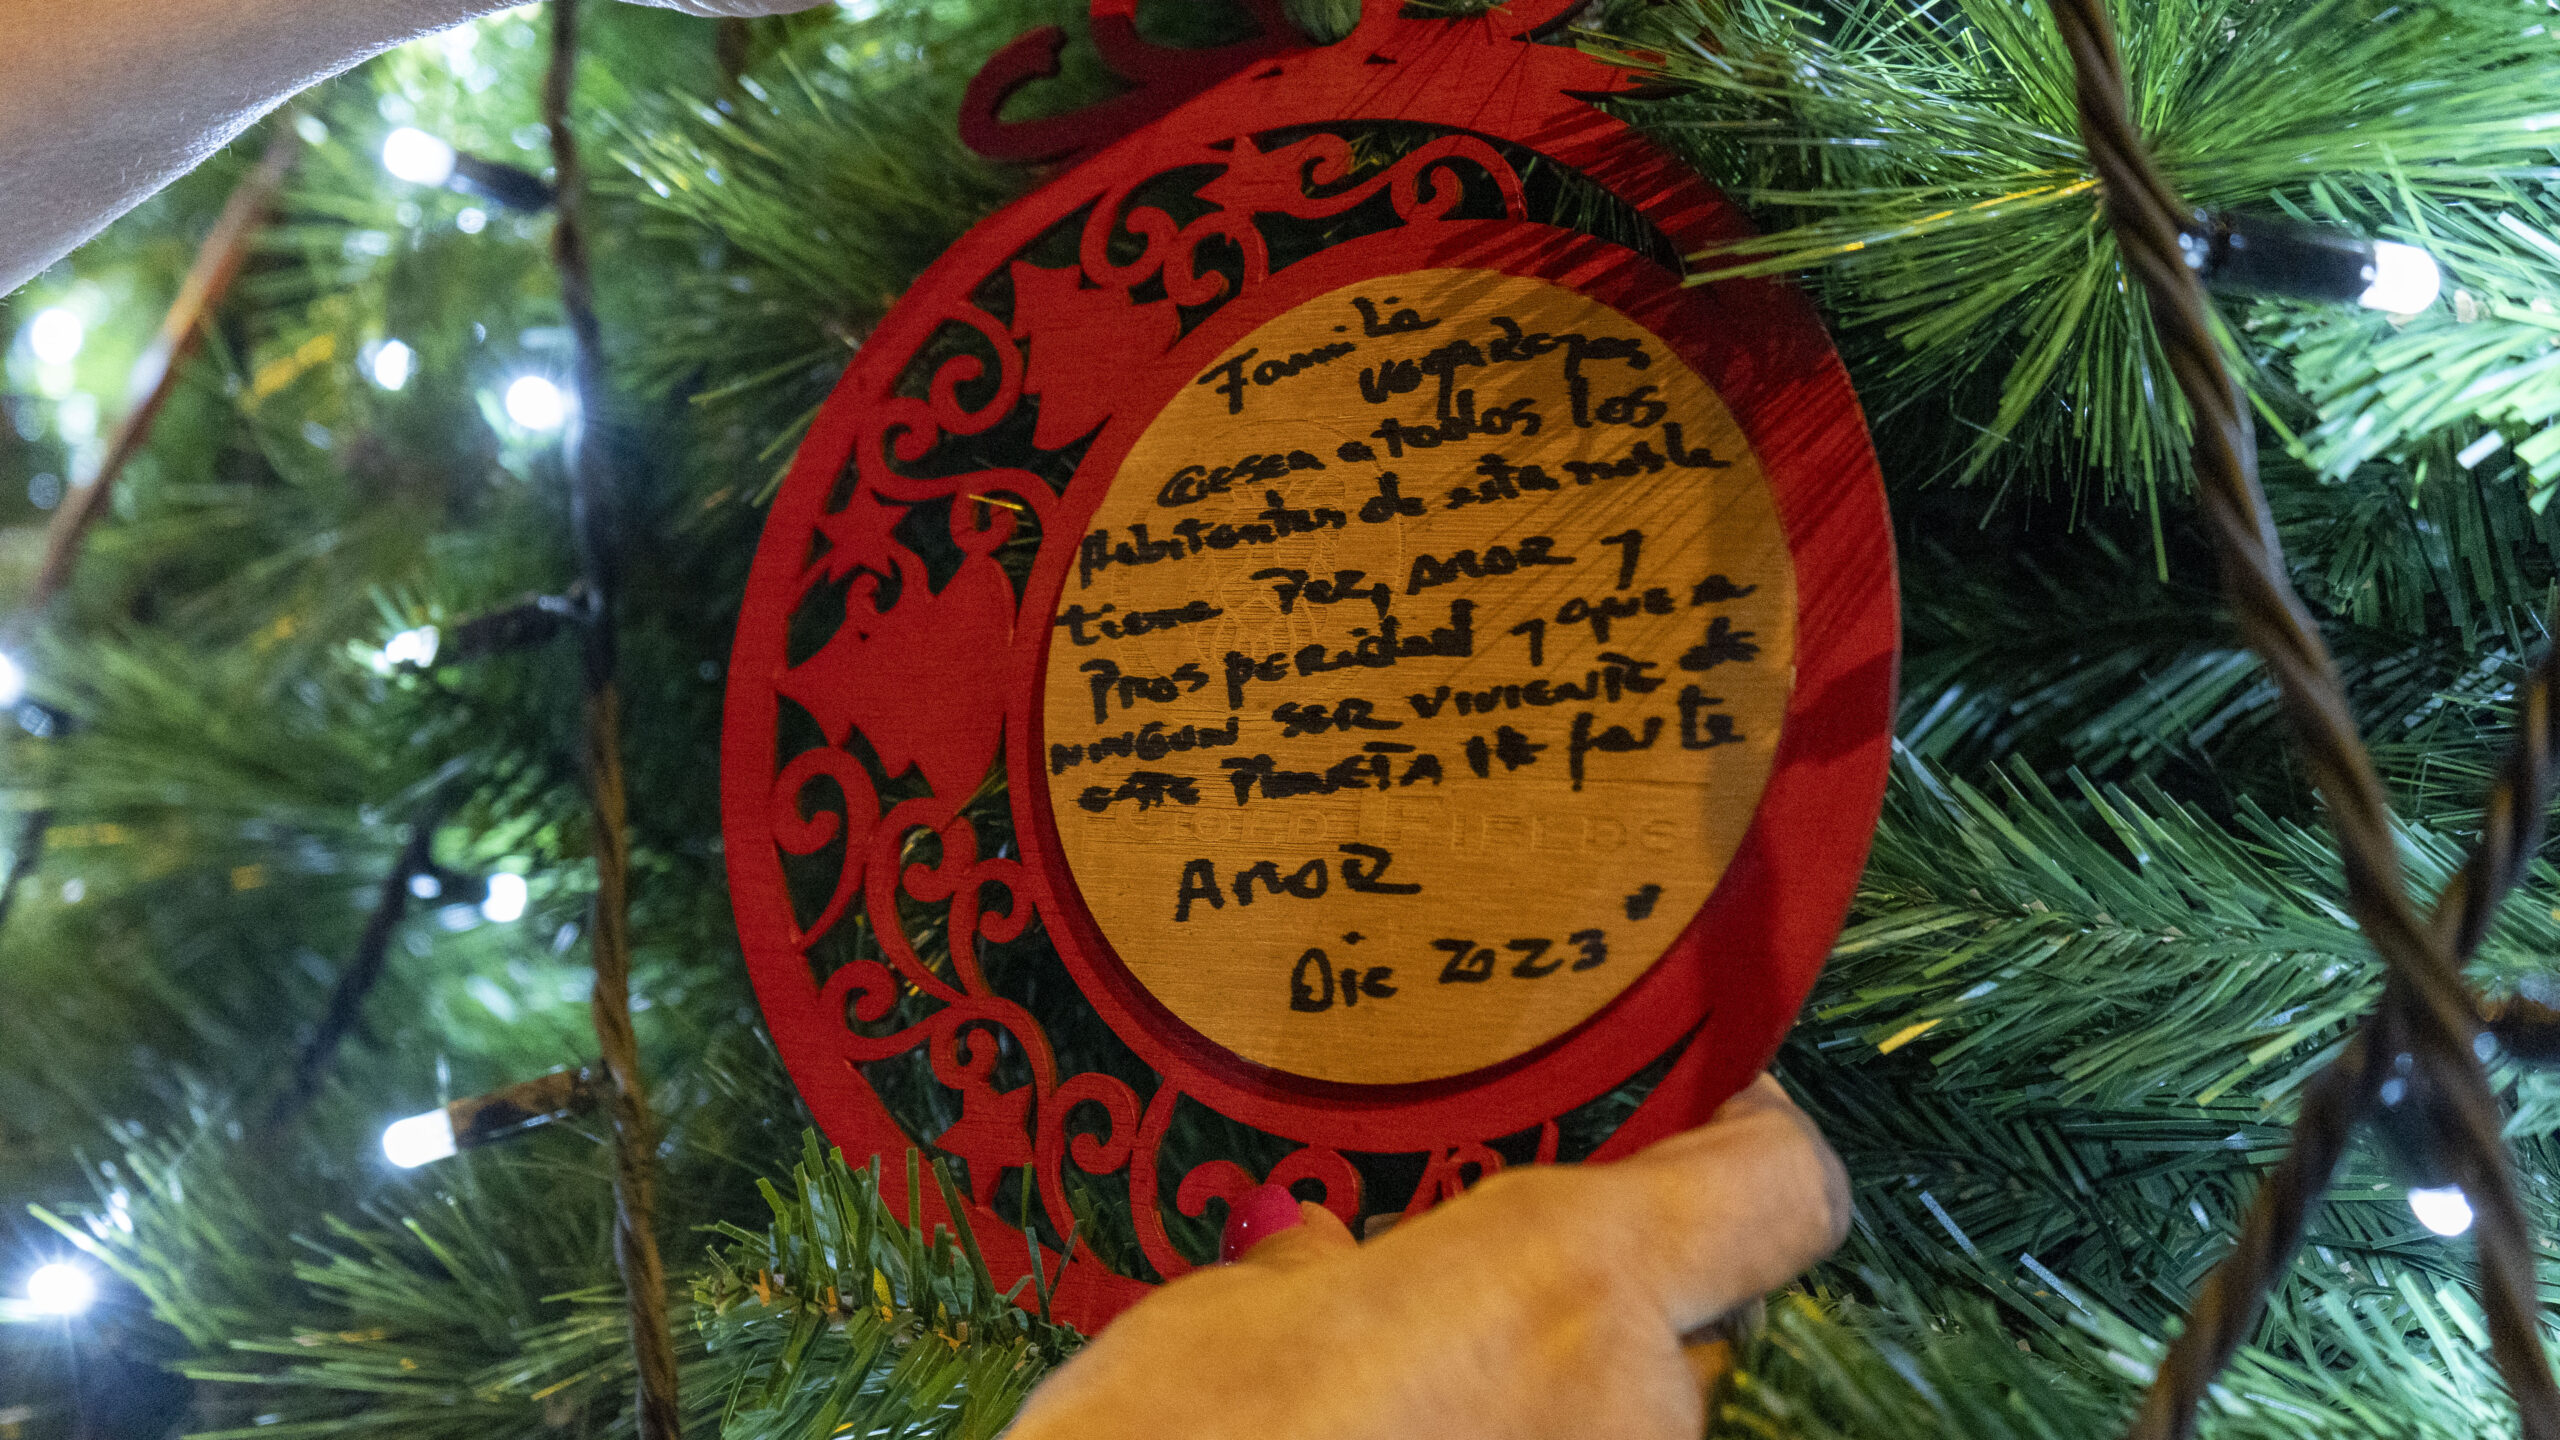 Familia
Vega Reyes
desea a todos los
Habitantes de esta noble
tierra Paz, AMOR Y
PROSPERIDAD Y que a
NINGUN SER VIVIENTE de
ESTE PLANETA le falte
GOLD FIELDS
AMOR "
Dic 2023